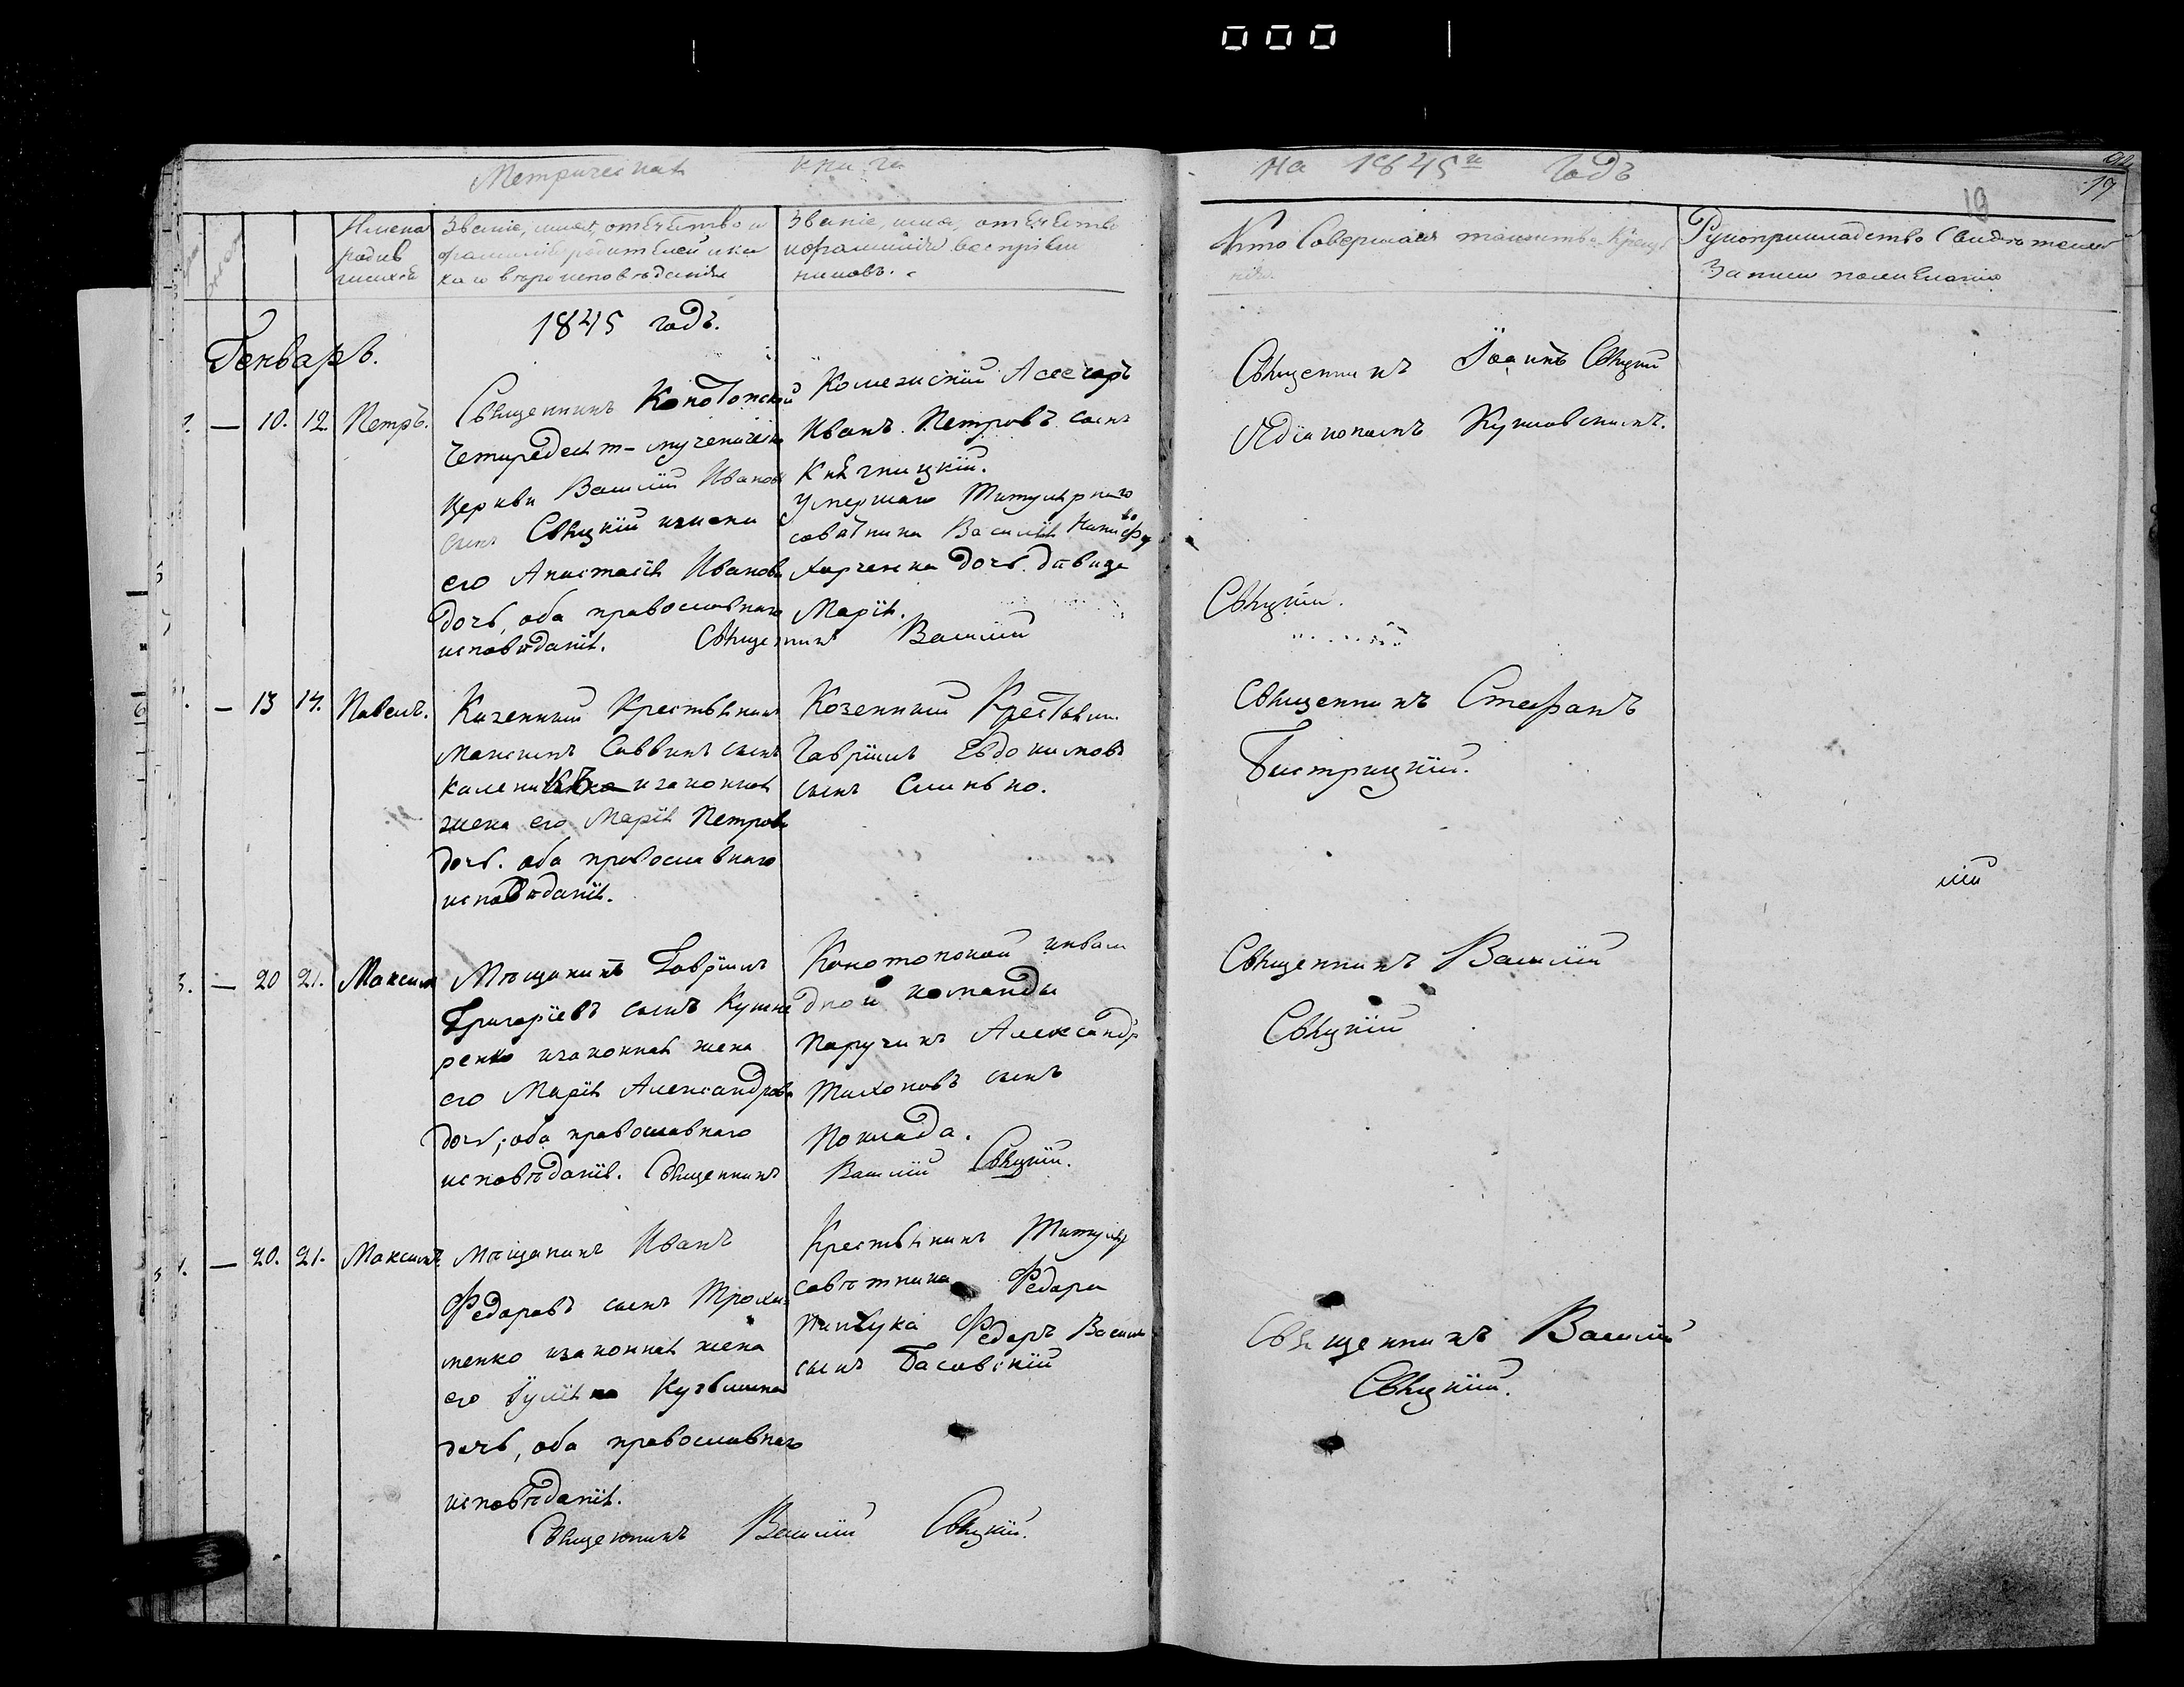 Метрическая книга
на 1845й Годъ
19
17
Имена родив
шихся
Званіе, имя, отечество и
фамилія родителей и ка
каго вѣроисповѣданія
Званіе, имя, отечество
и фамилія воспріем
никовъ.
Кто Совершалъ таинство Креще
нія.
Рукоприкладство Свидѣтелей
Записи по желанію
1845 годъ.
Генварь.
— 10. 12. Петръ.
Священникъ Конотопской
Четыредесят-мученическ
церкви Василій Иванов
сынъ Свѣцкій и жена
его Анастасія Иванова
дочь, оба православнаго
исповѣданія.
Колежискій Асесоръ
Иванъ Петровъ сынъ
Княгницкій.
Умершаго Титулярнаго
совѣтника Василія
Харченка дочь дѣвица
Марія.
Священникъ Василій
Свѣцкій.
Священникъ Іоаннъ Свѣцкій
сдіакономъ Кушловскимъ.
— 13 14. Павелъ.
Казенный Крестьянинъ
Максимъ Саввинъ сынъ
и законная
жена его Марія Петрова
дочь. оба православнаго
исповѣданія.
Козенный Крестьянин
Гавріилъ Евдокимовъ
сынъ Слинько.
Священникъ Стефанъ
Быстрицкій.
лій
3. — 20 21. Максим
Мѣщанинъ Гавріилъ
Григоріевъ сынъ Кушне
ренко и законная жена
его Марія Александрова
дочь; оба православнаго
исповѣданія. Священникъ
Конотопской инвали
дной команды
Паручикъ Александр
Тихоновъ сынъ
Поклада.
Василій Свѣцкій.
Священникъ Василій
Свѣцкій
— 20. 21. Максимъ
Мѣщанинъ Иванъ
Федоровъ сынъ Трохи
менко и законная жена
его Іулія Кузьмина
дочь, оба православнаго
исповѣданія.
Крестьянинъ Титуляр
совѣтника Федора
Пинчука Федоръ Васил
сынъ Басовскій
Священникъ Василій Свѣцкій.
Священникъ Василій
Свѣцкій.